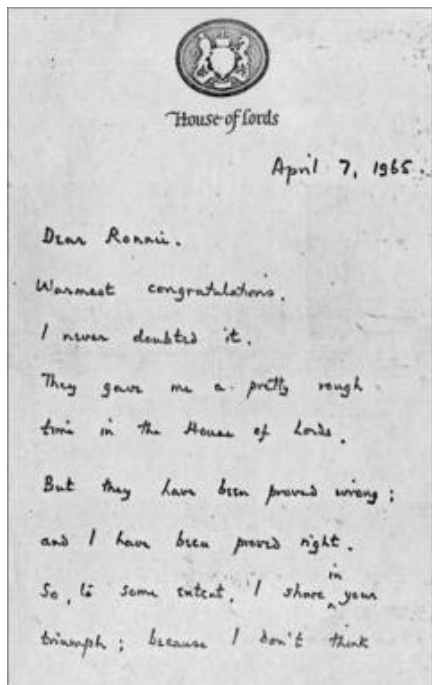 House of Lords
April 7, 1965.
Dear Ronnie.
Warmest congratulations.
I never doubted it.
They gave me a pretty rough
time in the House of Lords.
But they have been proved wrong;
and I have been proved right.
So, to some extent, I share in your
triumph; because I don't think